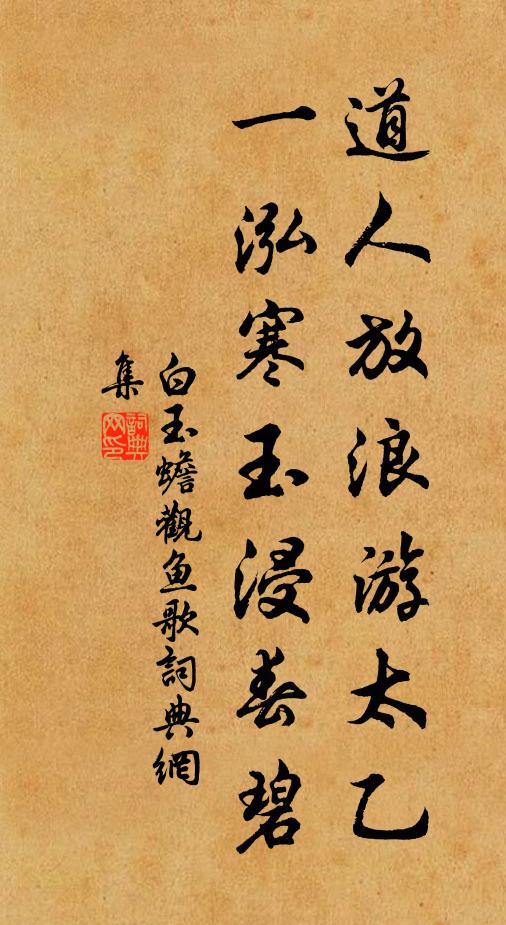 道人放浪游太乙
一泓寒玉浸春碧
白玉蟾觀鱼歌詞典網
集
詞典网印